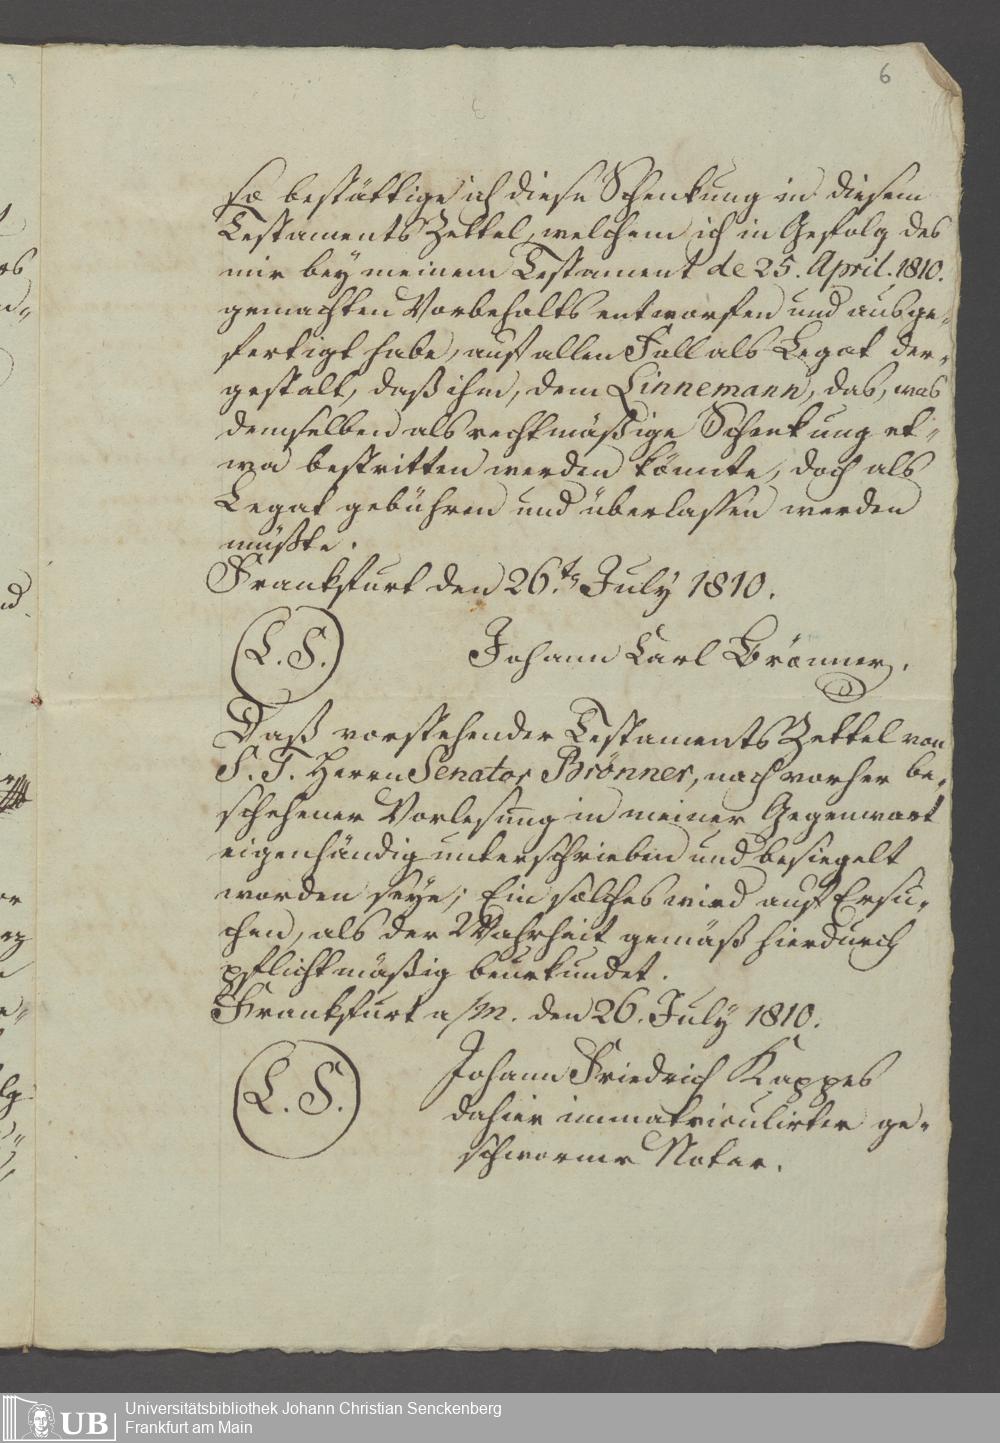 6
so bestättige ich diese Schenkung in diesem
TestamentsZettel, welchem ich in Gefolg des
mir bey meinem Testament de 25. April. 1810.
gemachten Vorbehalts entworfen und ausge-
fertigt habe, auf allen Fall als Legat der-
gestalt, daß ihm, dem Linnemann, das, was
demselben als rechtmäßige Schenkung et-
wa bestritten werden könnte, doch als
Legat gebühren und überlassen werden
müßte.
Frankfurt den 26.ts July 1810.
L. S.
Johann Carl Brönner.
Daß vorstehender TestamentsZettel von
S. T. Herrn Senator Brönner, nach vorher be-
schehener Vorlesung in meiner Gegenwart
eigenhändig unterschrieben und besiegelt
worden seye; Ein solches wird auf Ersu-
chen, als der Wahrheit gemäß hierdurch
pflichtmäßig beurkundet.
Frankfurt a/m. den 26. July 1810.
L. S.
Johann Friedrich Kappes
dahier immatriculirter ge-
schworner Notar.
UB
Universitätsbibliothek Johann Christian Senckenberg
Frankfurt am Main